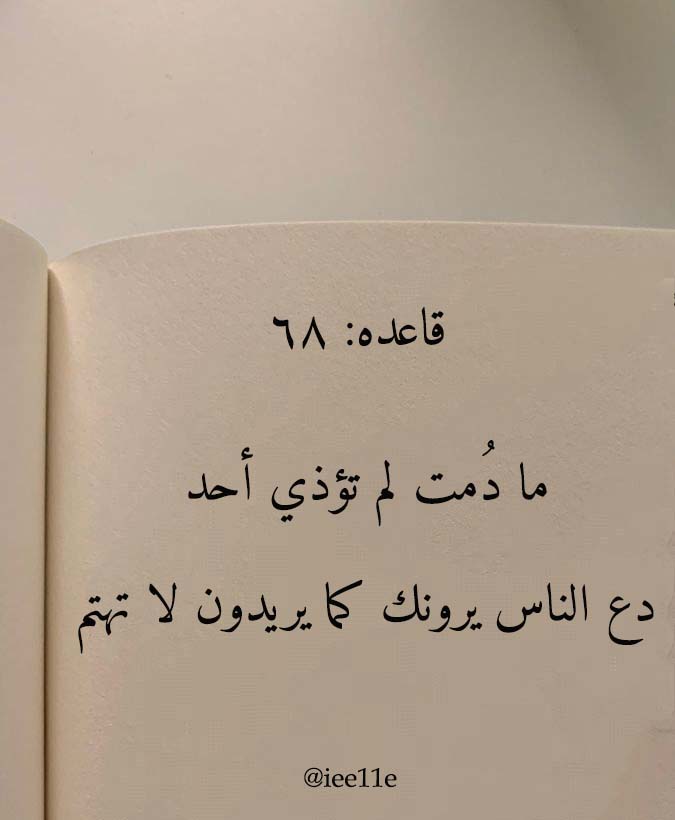 قاعده: ٦٨
ما دُمت لم تؤذي أحد
دع الناس يرونك كما يريدون لا تهتم
@iee11e